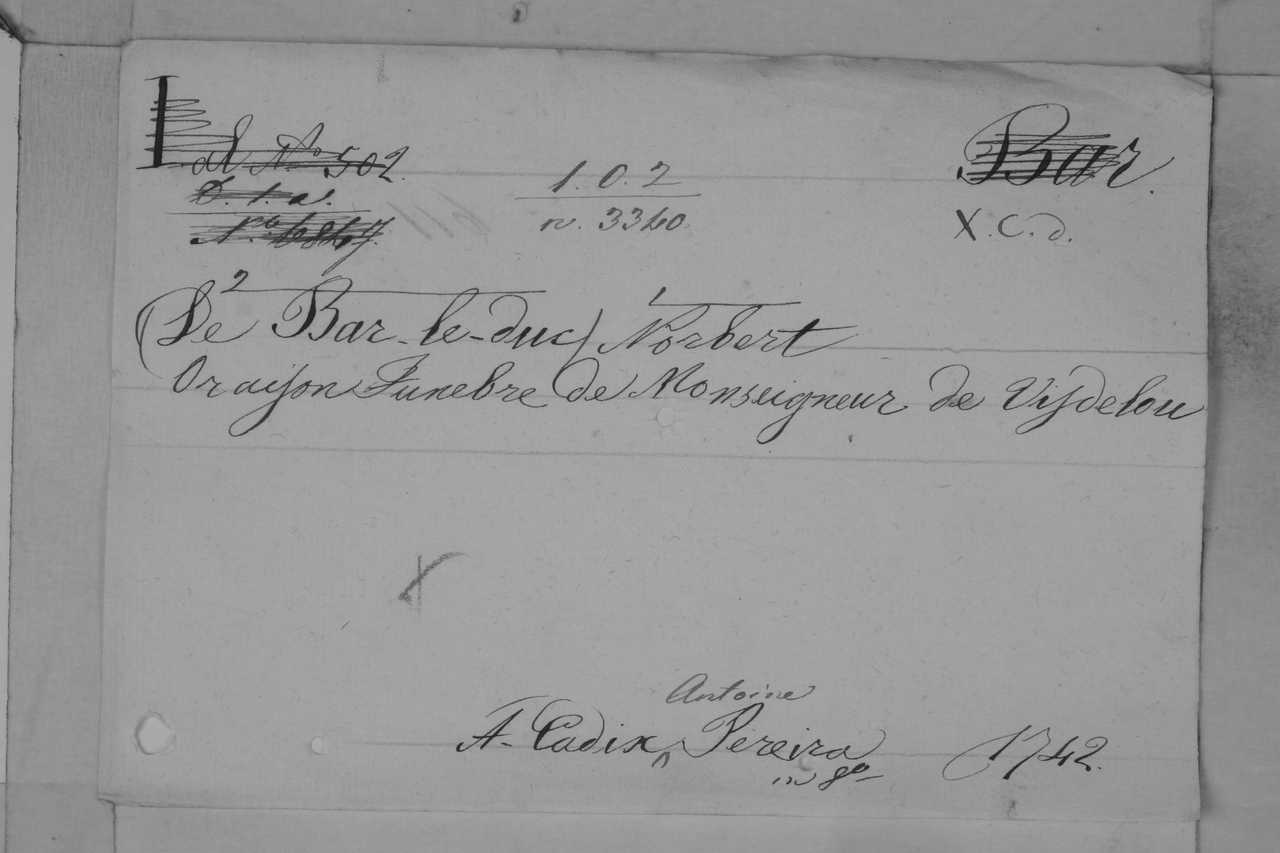 al N.º 502.
D. 1. a.
N.ro 6847.
1. 0. 2
n. 3340.
Bar.
X. C. d.
2 1
(De Bar-le-duc) Norbert
Oraison Funebre de Monseigneur de Visdelou
Antoine
A Cadix, Pereira 1742.
in 8º